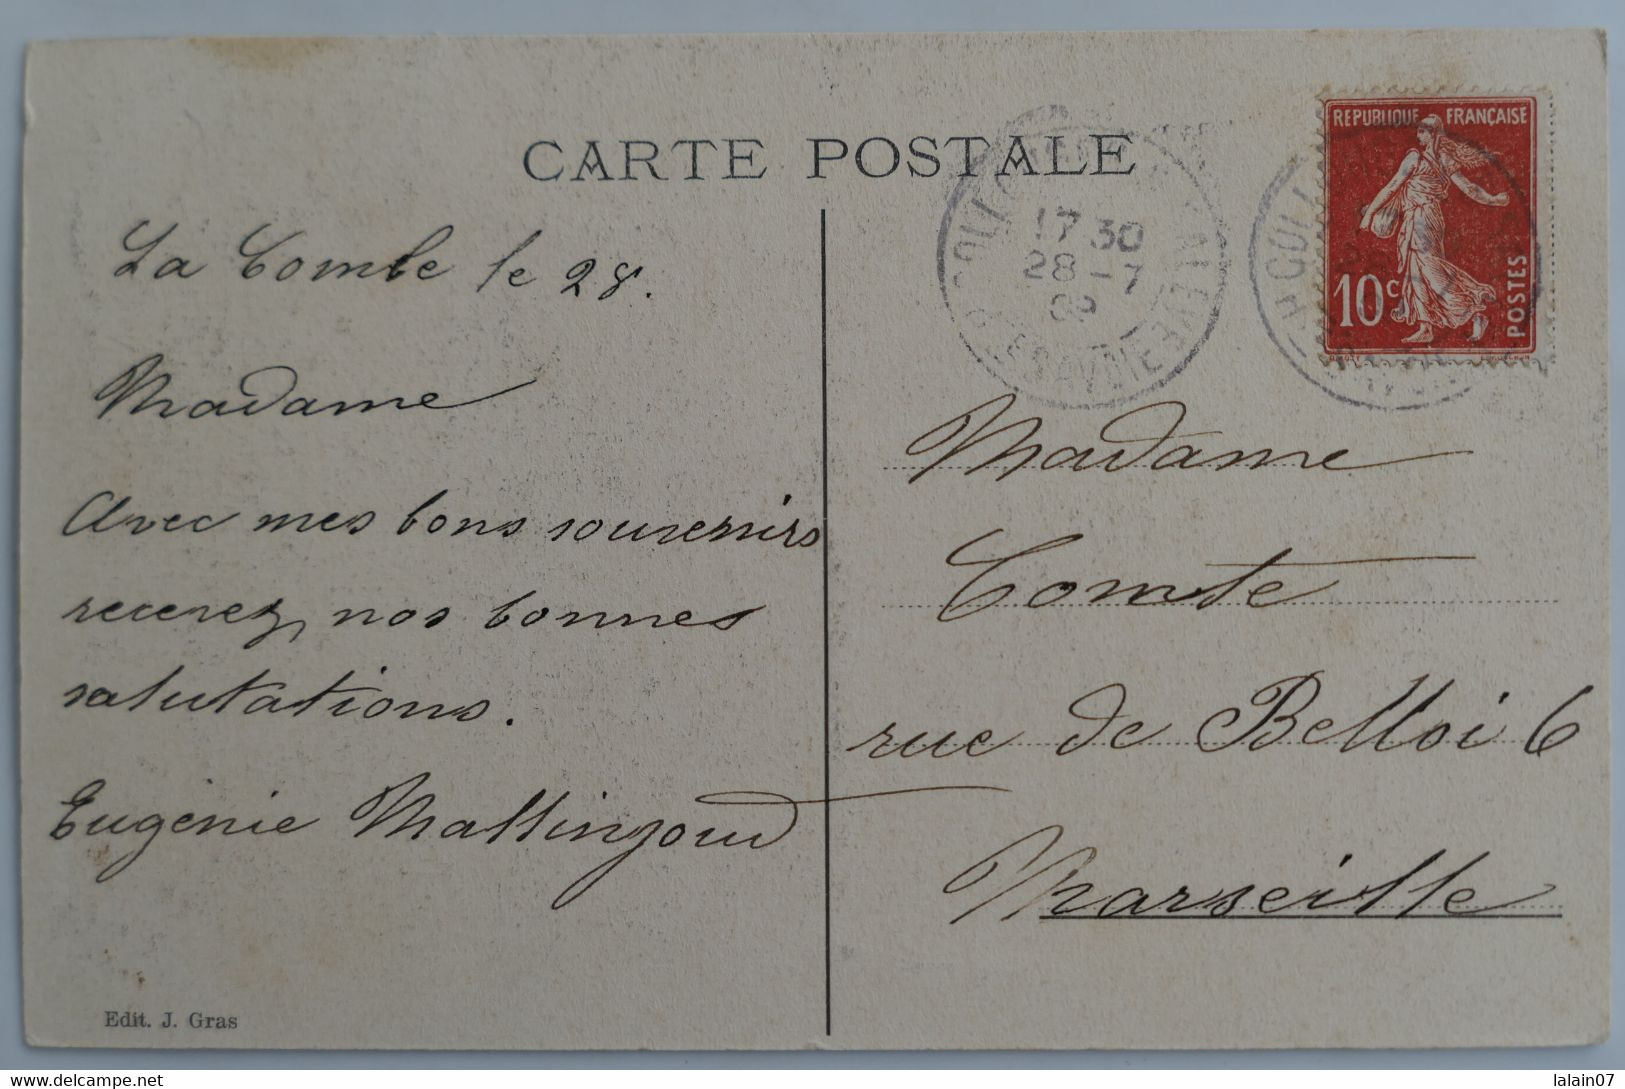 CARTE POSTALE
La Combe le 28.
Madame
Avec mes bons souvenirs
recevez nos bonnes
salutations.
Eugénie
Edit. J. Gras
17 30
28 - 7
09
REPUBLIQUE FRANÇAISE
10c
POSTES
Madame
Comte
rue de Belloi 6
Marseille
lalain07